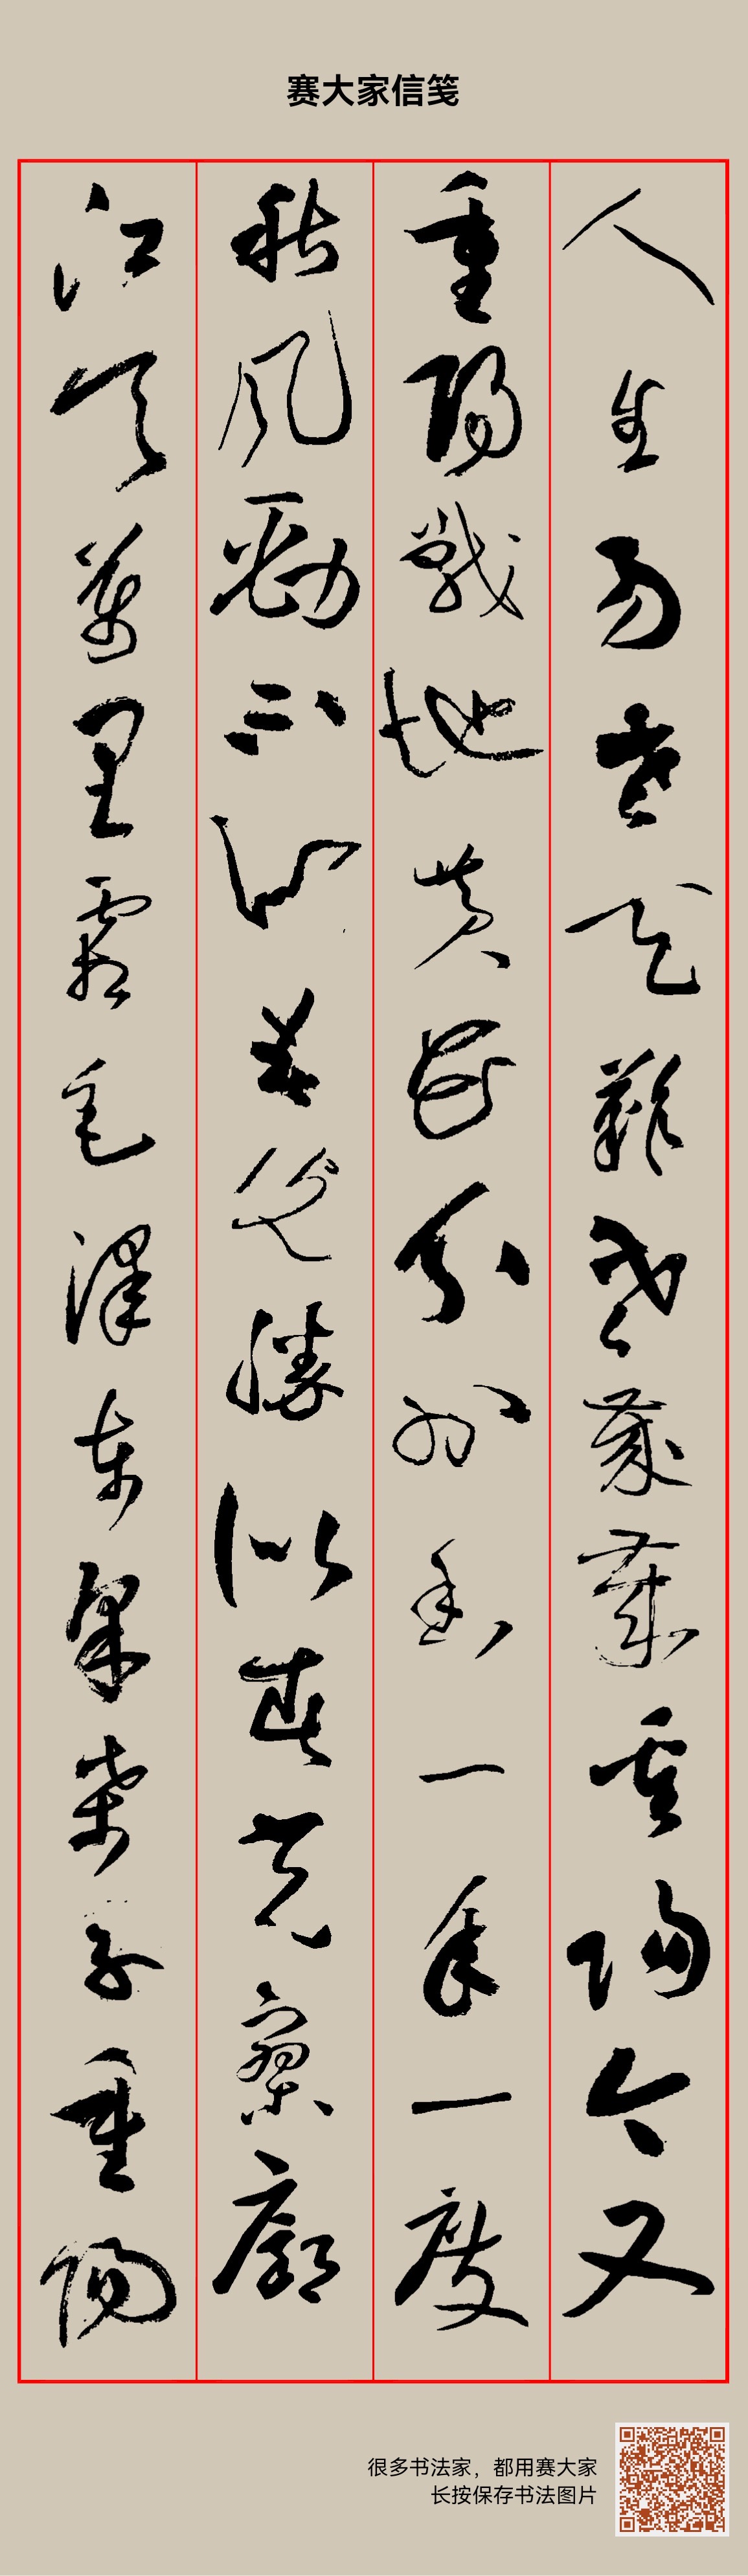 赛大家信笺
人生易老天難老歲歲重陽今又
重陽戰地黃花分外香一年一度
秋風勁不似春光勝似春光寥廓
江天萬里霜毛澤東采桑子重陽
很多书法家，都用赛大家
长按保存书法图片